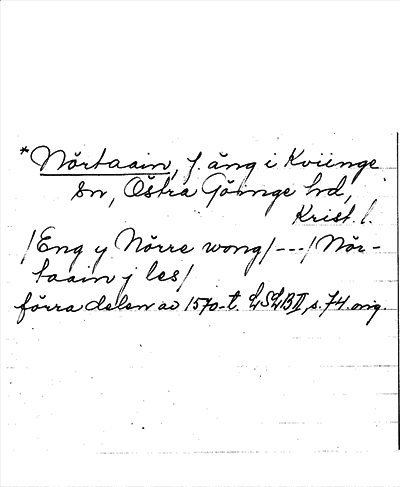 *Nörtaain, f. äng i Kviinge
sn, Östra Göinge hd,
Krist. l.
/Eng y Nörre wong/---/Nör-
taain j les/
förra delen av 1570-t. LSLB II, s. 74. orig.